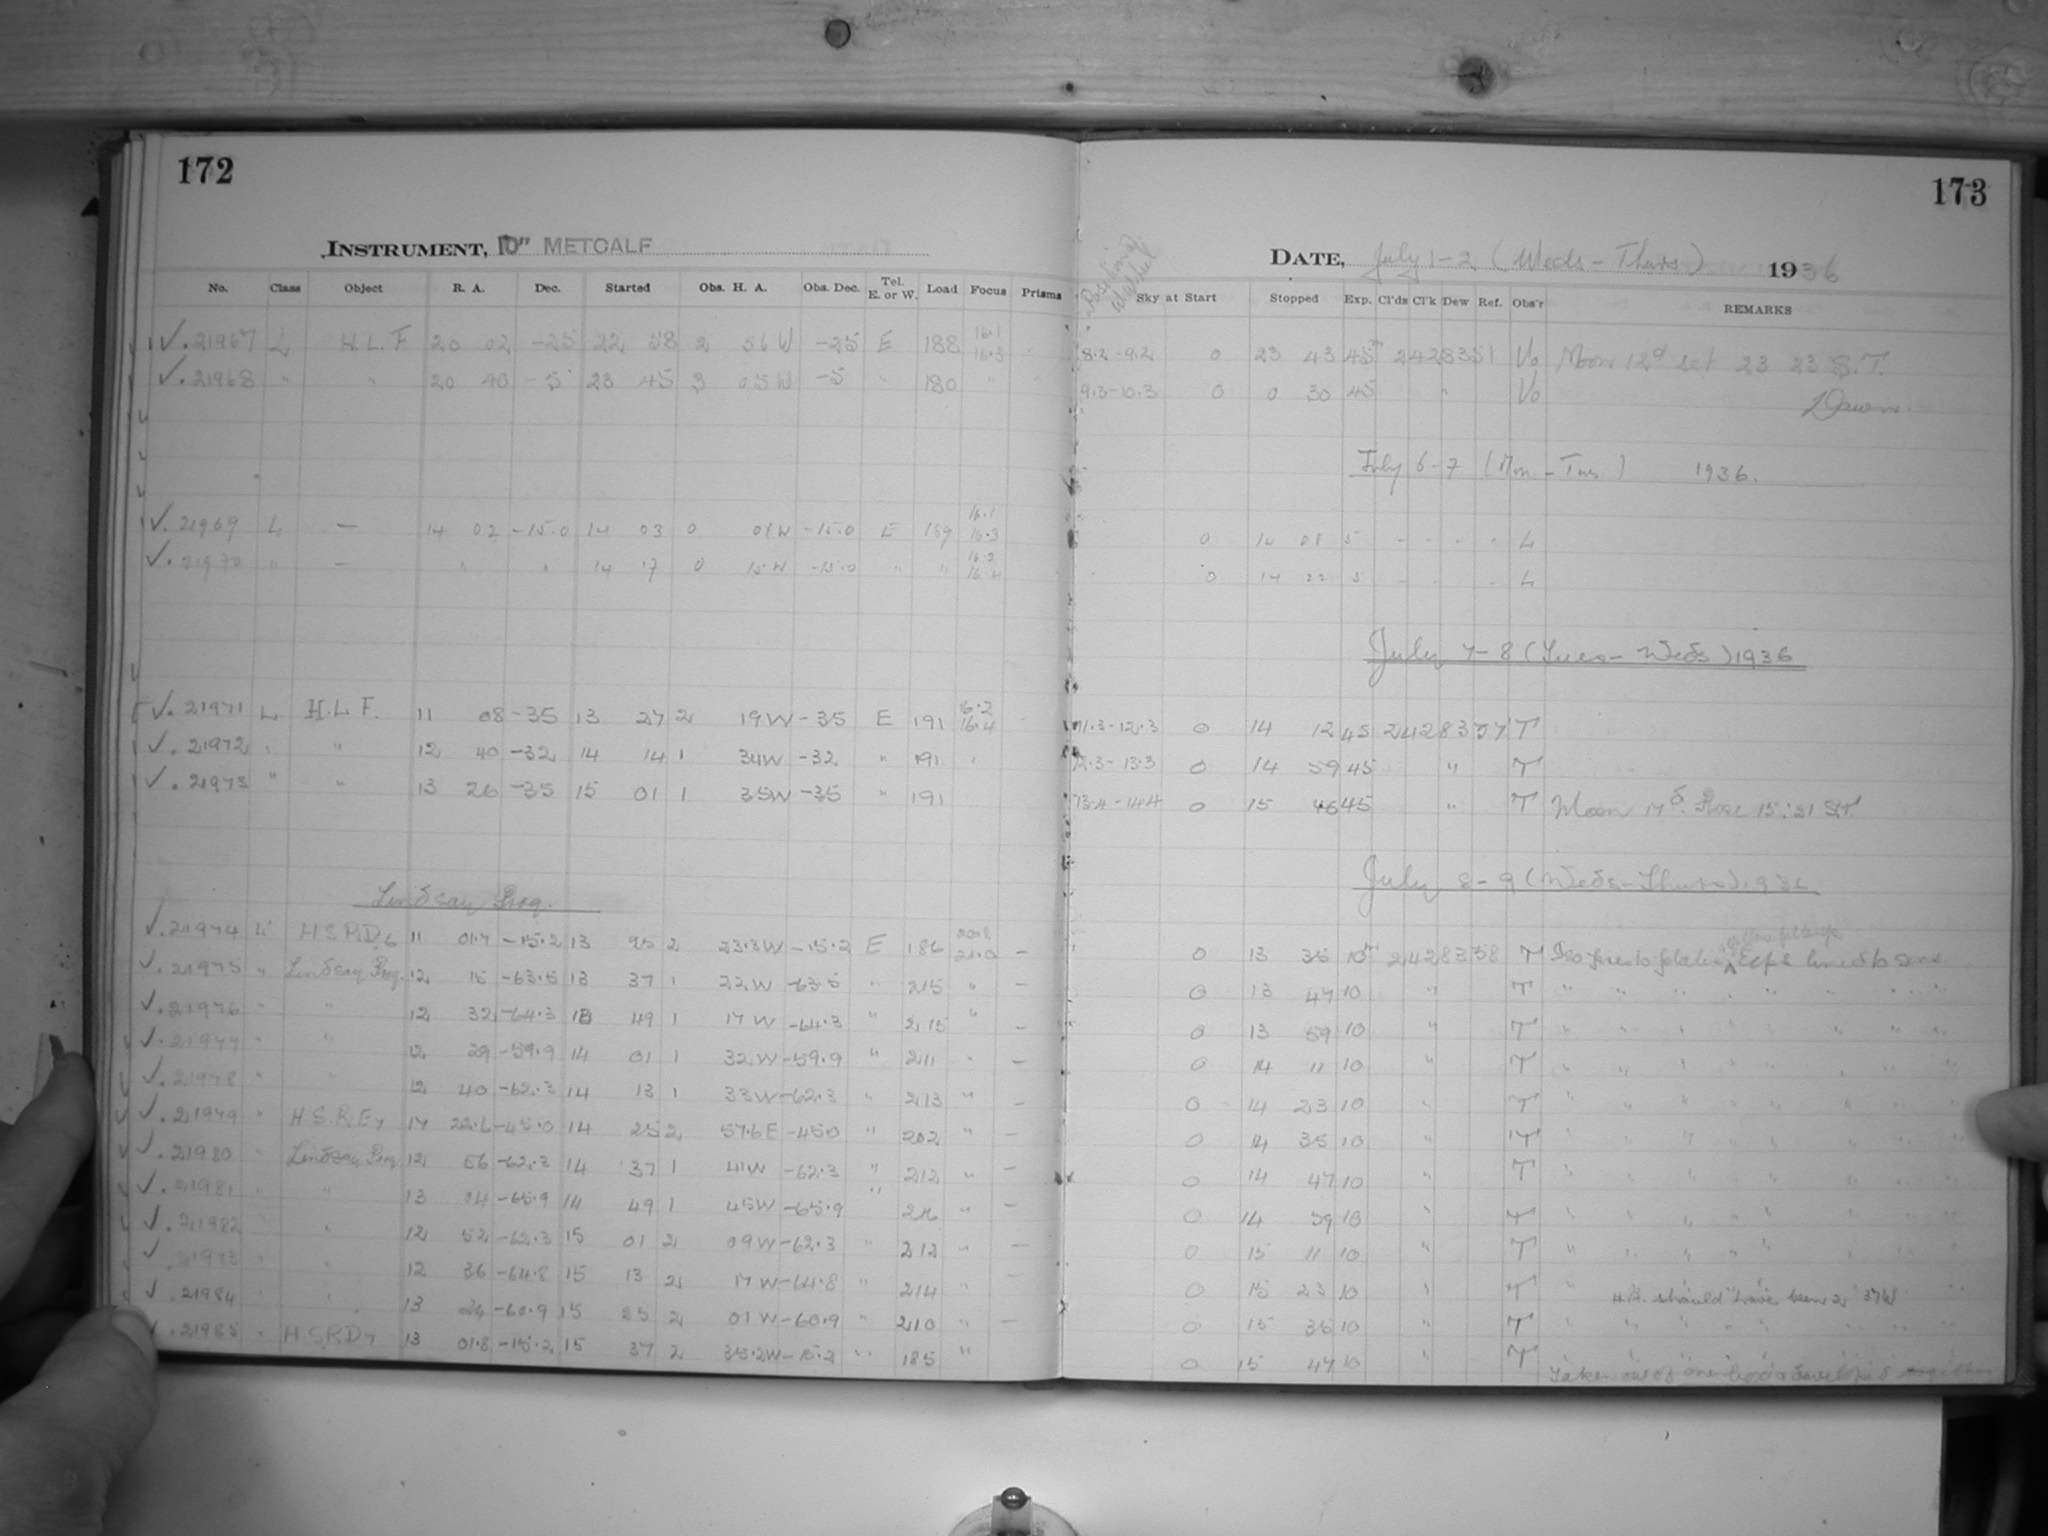 172
173
INSTRUMENT, 10" METCALF
DATE, July 1-2 (Weds - Thurs) 1936
No. Class Object R. A. Dec. Started Obs. H. A. Obs. Dec. Tel. E. or W. Load Focus Prisms Sky at Start Stopped Exp. Cl'ds Cl'k Dew Ref. Obs'r REMARKS
21967 L H.L.F 20 02 -25 22 58 2 56 W -25 E 188 16.1 16.3 8.2-9.2 0 23 43 45 2428351 Vo Moon 12d set 23 23 S.T.
21968 " " 20 40 -5 23 45 3 05 W -5 " 180 " 9.3-10.3 0 0 30 45 " Vo
Dawn
July 6-7 (Mon. - Tues.) 1936.
21969 L — 14 02 -15.0 14 03 0 01W -15.0 E 189 16.1 16.3 0 14 08 5 - - - - L
21970 " — " " 14 17 0 15W -15.0 " " 16.2 16.4 0 14 22 5 - - - L
July 7-8 (Tues - Weds) 1936
21971 L H.L.F. 11 08 -35 13 27 2 19W -35 E 191 16.2 16.4 11.3-12.3 0 14 12 45 24283 57 T
21972 " " 12 40 -32 14 14 1 34W -32 " 191 " 12.3-13.3 0 14 59 45 " T
21973 " " 13 26 -35 15 01 1 35W -35 " 191 13.4-14.4 0 15 46 45 " T Moon 17d. Rose 15:21 S.T.
July 8-9 (Weds-Thurs) 1936
Lindsay Prog.
21974 L H S.R.D6 11 01.7 -15.2 13 25 2 23.3W -15.2 E 186 20.8 21.0 — 0 13 35 10m 24283 58 T
21975 " Lindsay Prog. 12 15 -63.5 13 37 1 22W -63.5 " 215 " — 0 13 47 10 " T " " " " " "
21976 " " 12 32 -64.3 13 49 1 17W -64.3 " 215 " — 0 13 59 10 " T " " " " " "
21977 " " 12 29 -59.9 14 01 1 32W -59.9 " 211 " — 0 14 11 10 " T " " " " " "
21978 " " 12 40 -62.3 14 13 1 33W -62.3 " 213 " — 0 14 23 10 " T " " " " " "
21979 " H S.R.E7 17 22.6 -45.0 14 25 2 57.6E -45.0 " 202 " — 0 14 35 10 " T " " " " " "
21980 " Lindsay Prog 12 56 -62.3 14 37 1 41W -62.3 " 212 " — 0 14 47 10 " T " " " " " "
21981 " " 13 04 -65.9 14 49 1 45W -65.9 " 216 " — 0 14 59 10 " T " " " " " "
21982 " " 12 52 -62.3 15 01 2 09W -62.3 " 212 " — 0 15 11 10 " T " " " " " "
21983 " " 12 36 -64.8 15 13 2 17W -64.8 " 214 " — 0 15 23 10 " T " H.A. should have been 2 37W
21984 " " 13 24 -60.9 15 25 2 01W -60.9 " 210 " — 0 15 35 10 " T " " " " " "
21985 " H S.R.D7 13 01.8 -15.2 15 37 2 35.2W -15.2 " 185 " 0 15 47 10 " T Taken out of one box & developed together